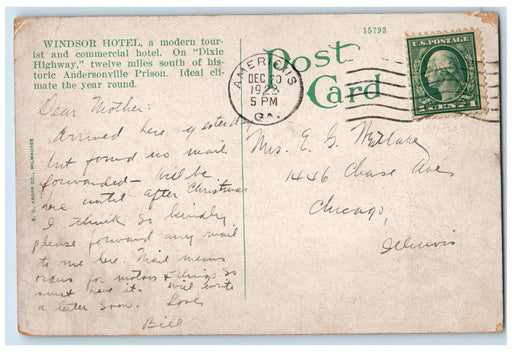 WINDSOR HOTEL, a modern tour-
ist and commercial hotel. On "Dixie
Highway," twelve miles south of his-
toric Andersonville Prison. Ideal cli-
mate the year round.
15793
Post
Card
AMERICUS
DEC 20
5 PM
GA.
U.S. POSTAGE
1 CENT 1
E. C. KROPP CO., MILWAUKEE
Dear Mother:
Arrived here yesterday
but found no mail
forwarded - will be
here until after Christmas
I think so kindly
please forward any mail
to me here. Mail means
orders for motors & things so
must have it. will write
a letter soon. Love
Bill
Mrs. E. G. Westlake
1446 Chase Ave
Chicago,
Illinois